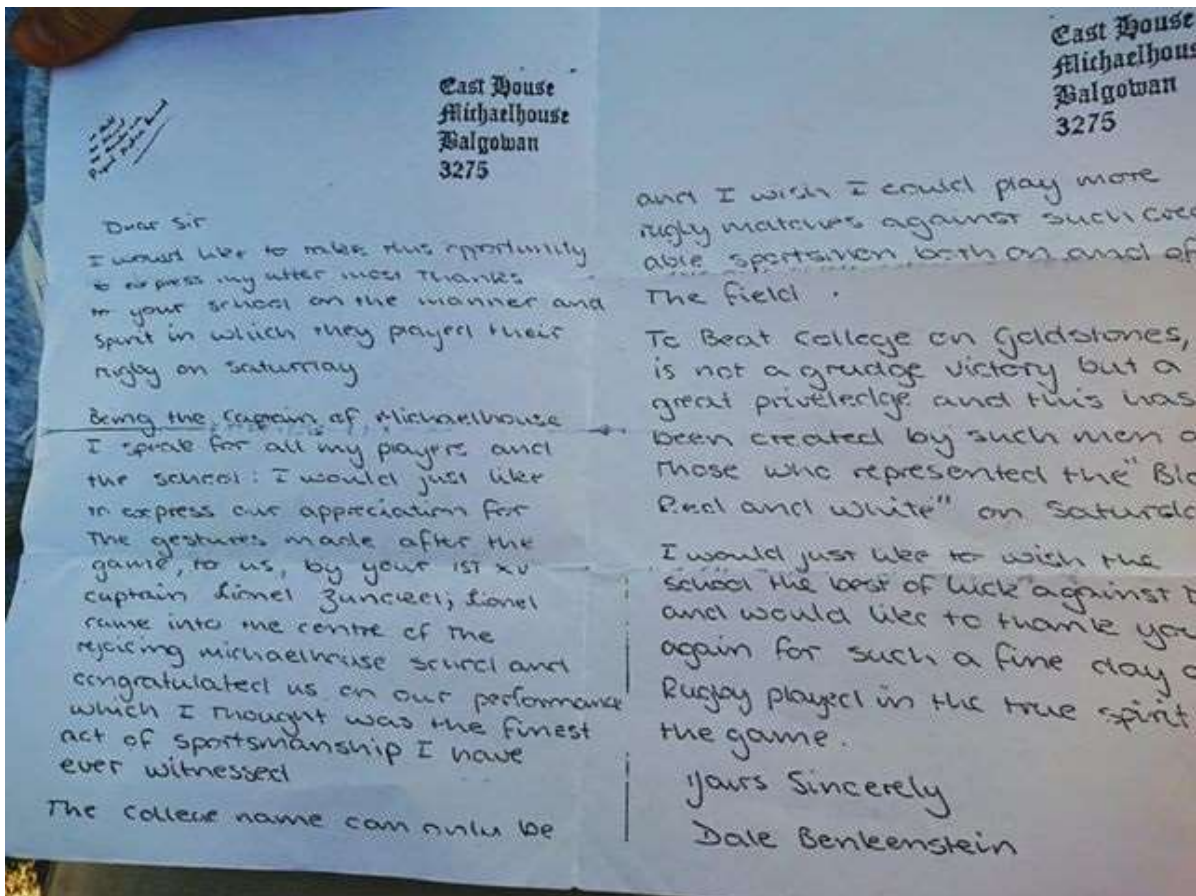 East House
Michaelhouse
Balgowan
3275
Dear Sir
I would like to take this opportunity
to express my utter most Thanks
to your school on the manner and
spirit in which they played their
rugby on Saturday
Being the Captain of Michaelhouse
I speak for all my players and
the school: I would just like
to express our appreciation for
The gestures made after the
game, to us, by your 1ST XV
captain Lionel
came into the centre of the
rejoicing michaelhouse school and
congratulated us on our performance
which I thought was the finest
act of sportsmanship I have
ever witnessed
The college name can only be
East House
Michaelhous
Balgowan
3275
and I wish I could play more
rugby matches against such
able sportsmen both on and of
The field .
To Beat College on Goldstones,
is not a grudge victory but a
great priveledge and this has
been created by such men
Those who represented the "Bla
Red and White" on Saturda
I would just like to wish the
school the best of luck against
and would like to thank you
again for such a fine day o
Rugby played in the true spirit
the game.
Yours Sincerely
Dale Benkenstein